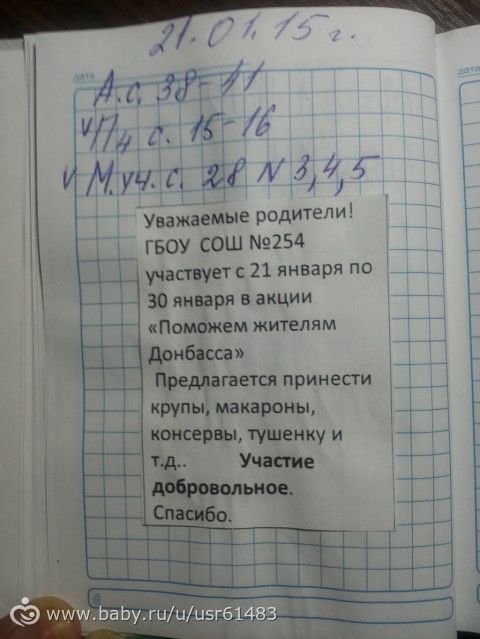 21.01.15 г.
дата
дата
А.с. 38-41
√ П4 с. 15-16
√ М.уч.с. 28 N 3,4,5
Уважаемые родители!
ГБОУ СОШ №254
участвует с 21 января по
30 января в акции
«Поможем жителям
Донбасса»
Предлагается принести
крупы, макароны,
консервы, тушенку и
т.д.. Участие
добровольное.
Спасибо.
www.baby.ru/u/usr61483